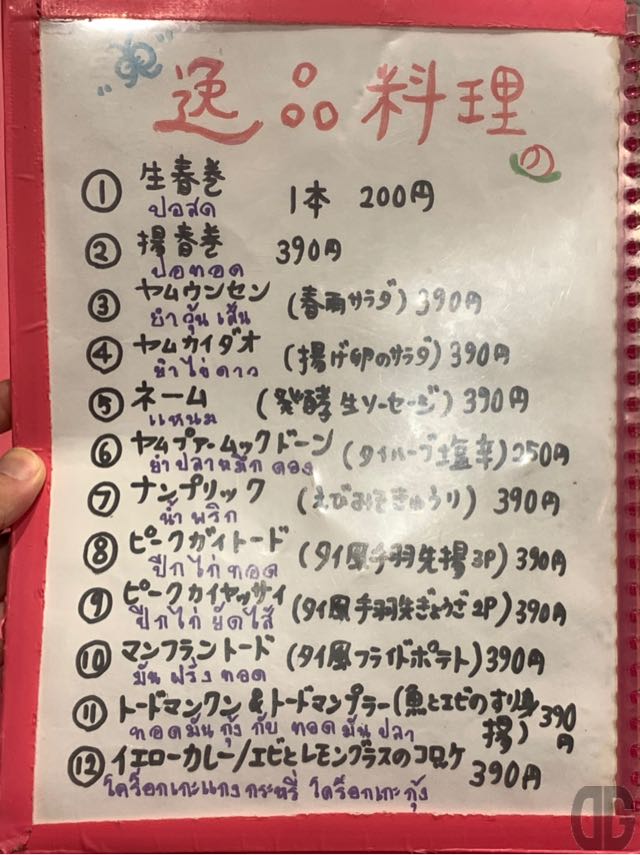 逸品料理の
① 生春巻 1本 200円
ปอสด
② 揚春巻 390円
ปอทอด
③ ヤムウンセン (春雨サラダ) 390円
ยำวุ้นเส้น
④ ヤムカイダオ (揚げ卵のサラダ) 390円
ยำไข่ดาว
⑤ ネーム (発酵生ソーセージ) 390円
แหนม
⑥ ヤムプァームックドーン (タイハーブ塩辛) 350円
ยำปลาหมึกดอง
⑦ ナンプリック (えびみそきゅうり) 390円
น้ำพริก
⑧ ピークガイトード (タイ風手羽先揚3P) 390円
ปีกไก่ทอด
⑨ ピークカイヤッサイ (タイ風手羽先ぎょうざ2P) 390円
ปีกไก่ยัดไส้
⑩ マンフラントード (タイ風フライドポテト) 390円
มันฝรั่งทอด
⑪ トードマンクン & トードマンプラー (魚とエビのすり身揚) 390円
ทอดมันกุ้ง กับ ทอดมันปลา
⑫ イエローカレー/エビとレモングラスのコロッケ 390円
โคร็อกเกะแกงกระหรี่ โคร็อกเกะกุ้ง